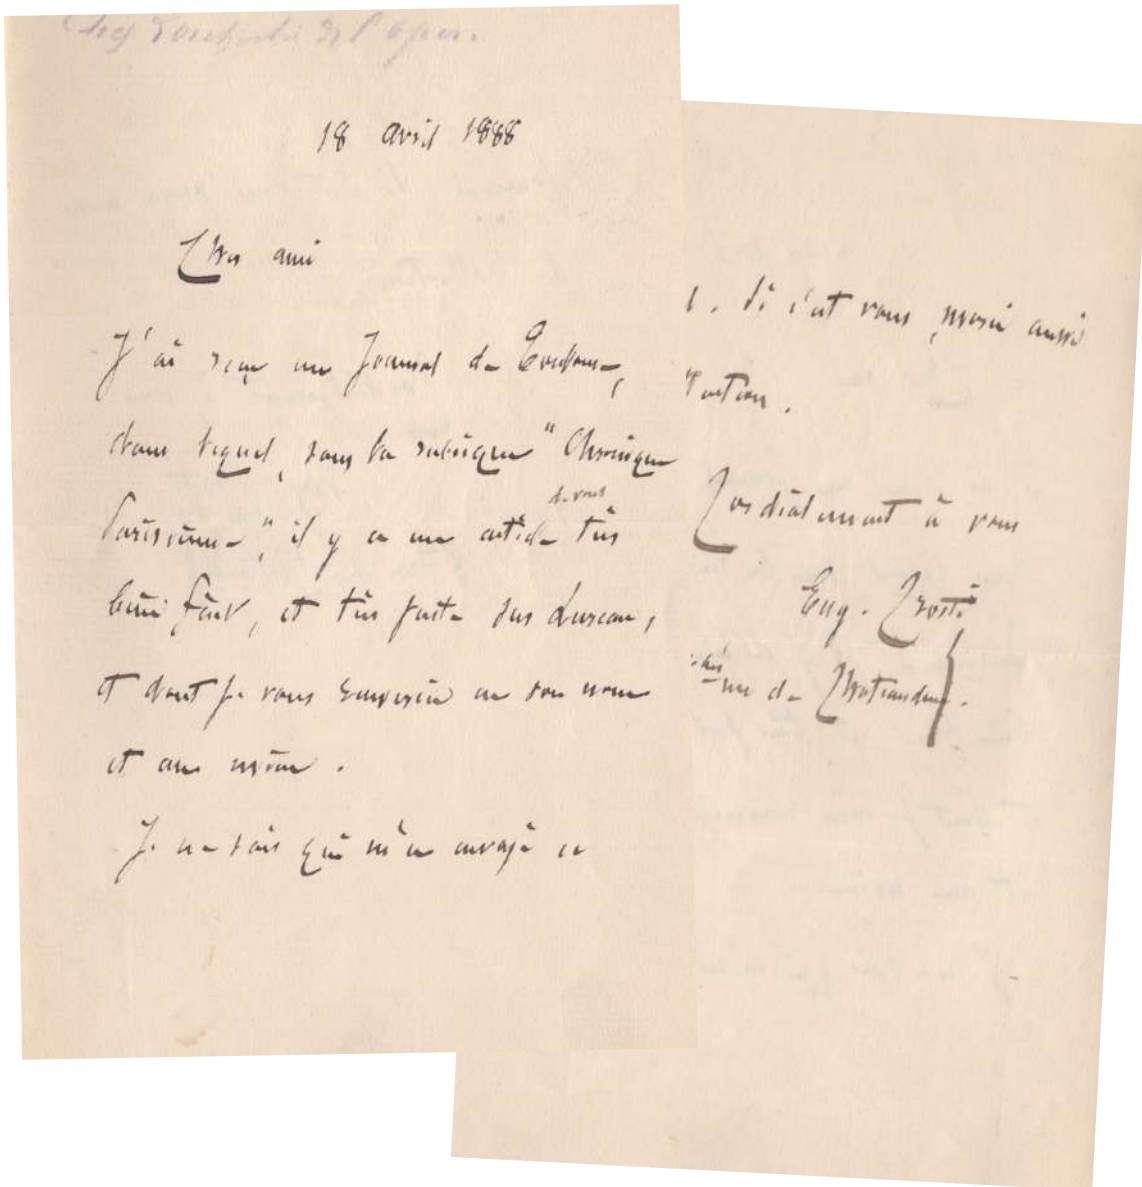 Chef d'orchestre de l'opéra.
18 avril 1888
Cher ami
J'ai reçu un Journal de Toulouse,
dans lequel, sous la rubrique "Chronique
de vous
Parisienne", il y a un article très
bien fait, et très juste sur Lureau,
et dont je vous remercie en son nom
et au mien.
Je ne sais qui m'a envoyé ce
. Si c'est vous, merci aussi
Cordialement à vous
Eug.
rue de Chateaudun.